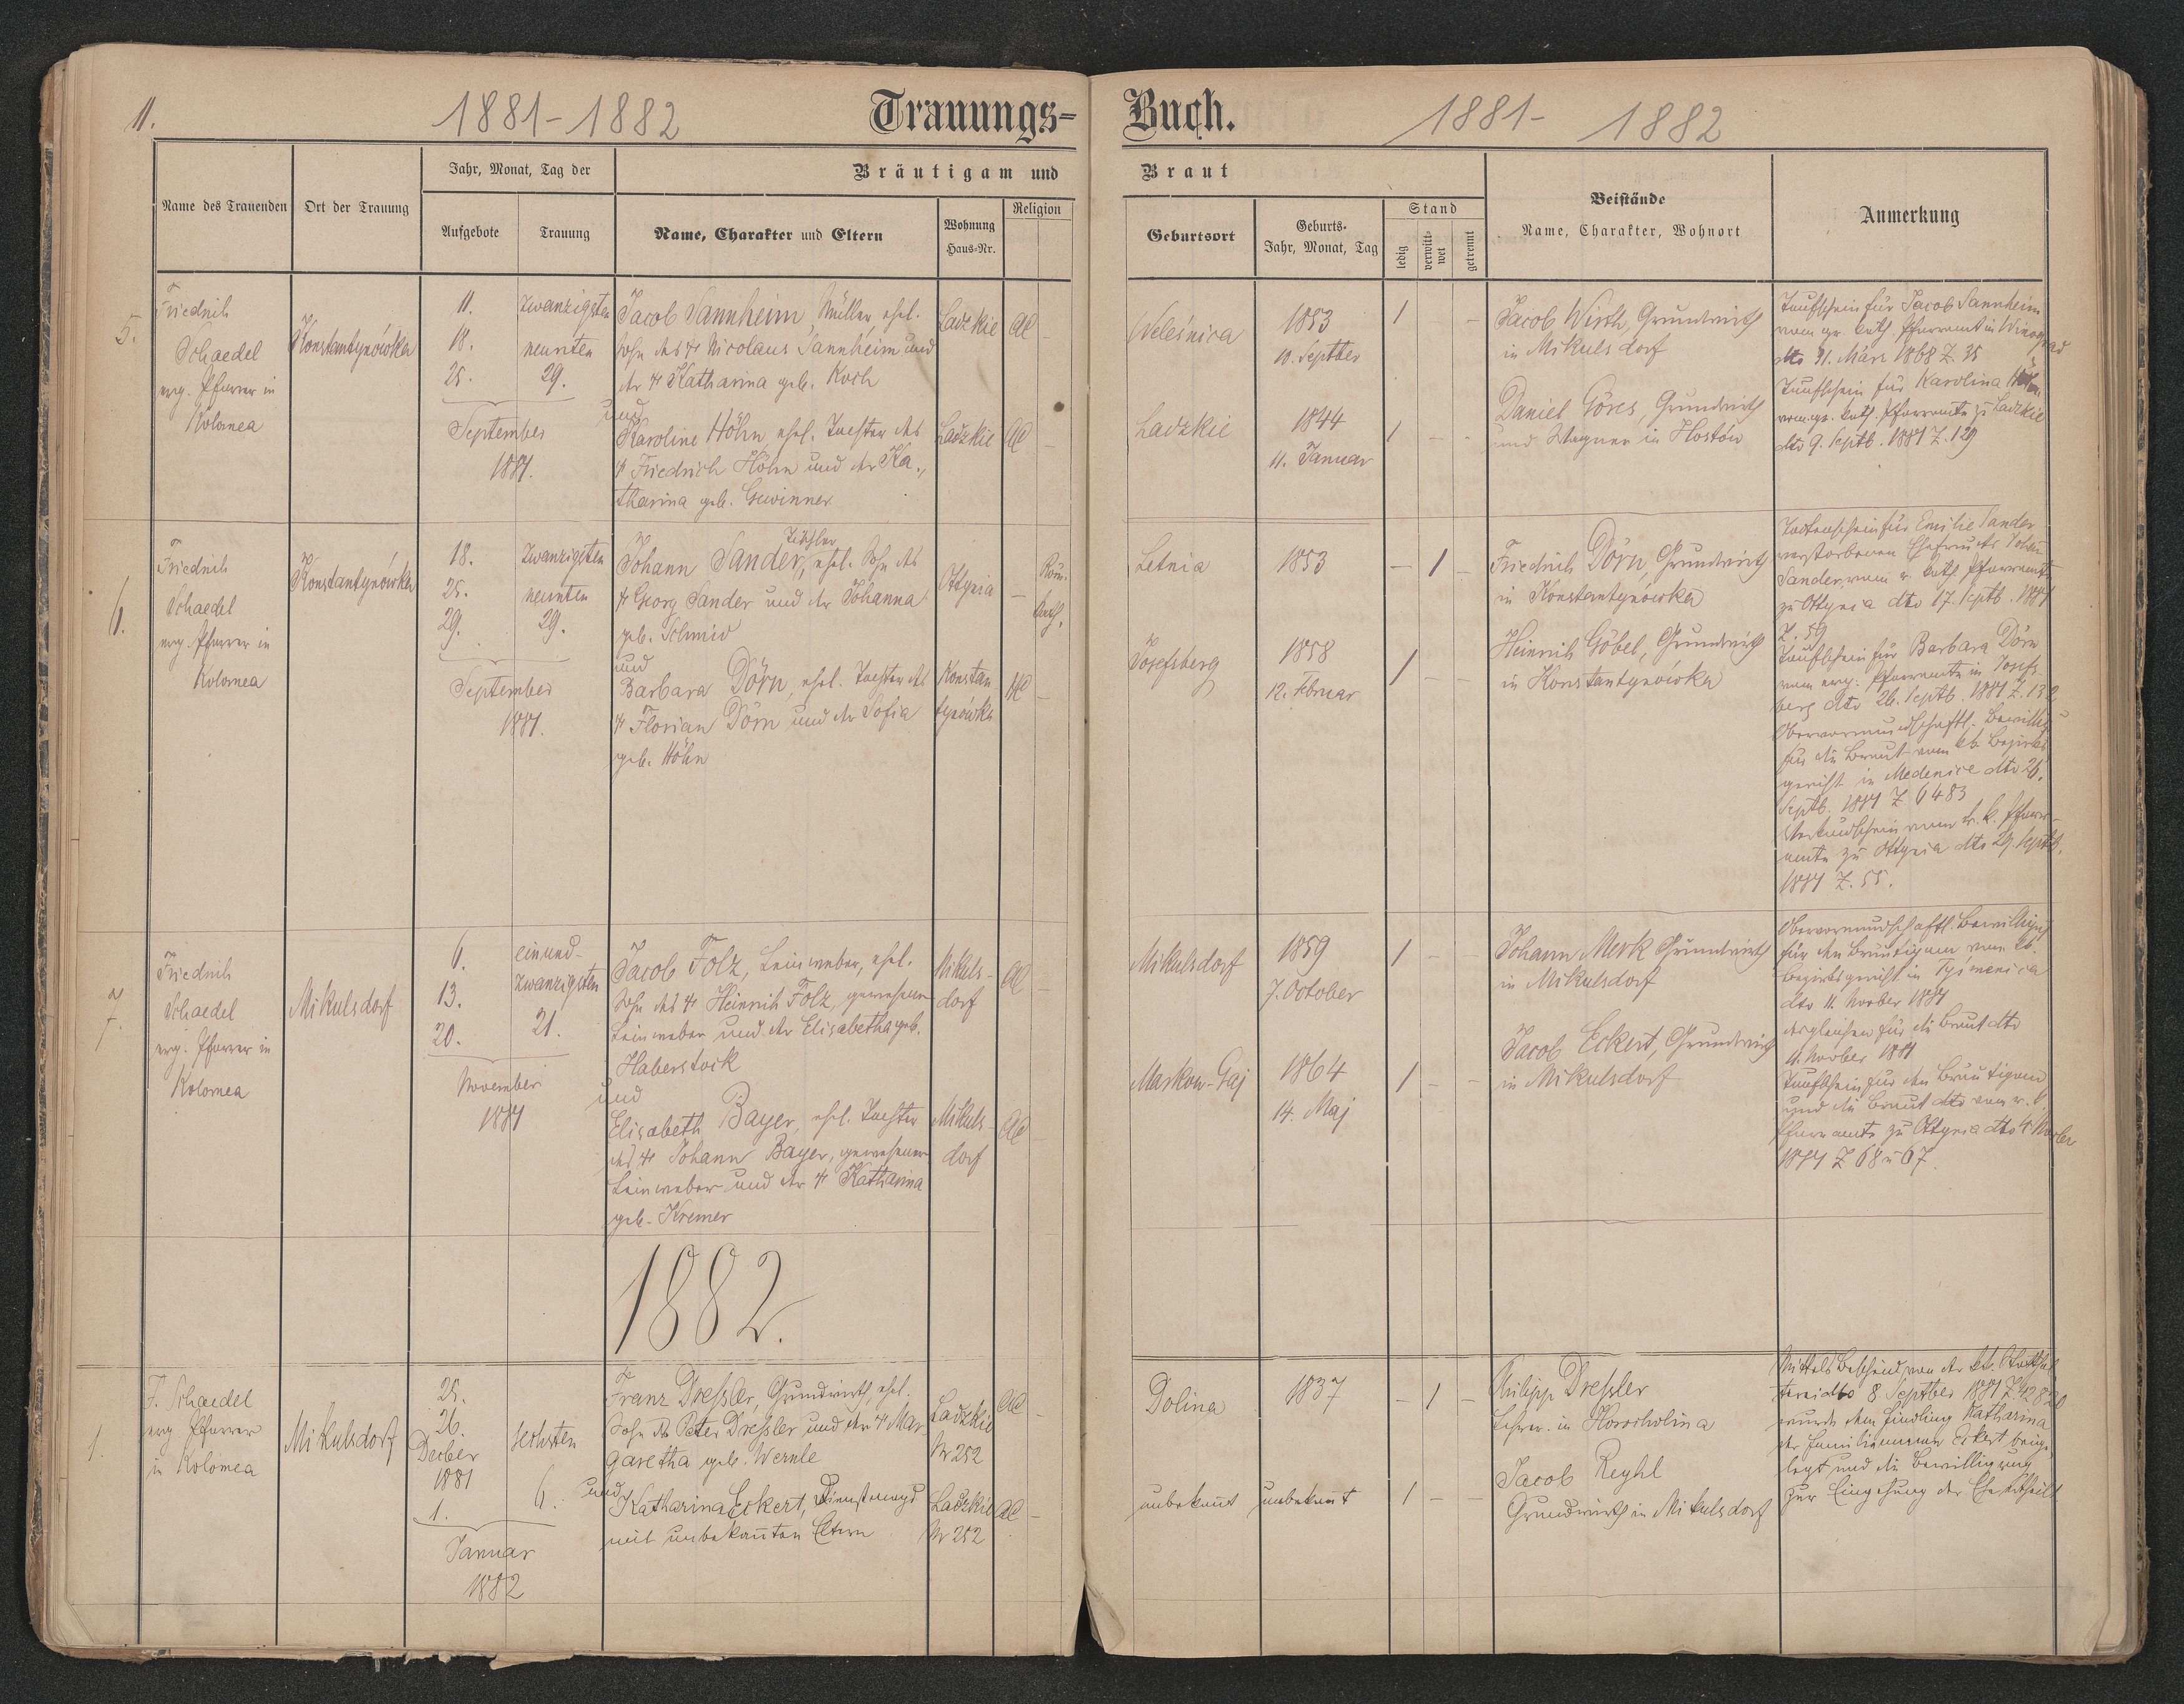 11.
1881-1882
Trauungs-
Buch.
1881-
1882
Name des Trauenden
Ort der Trauung
Jahr, Monat, Tag der
Aufgebote
Trauung
Bräutigam und
Braut
Name, Charakter und Eltern
Wohnung
Haus-Nr.
Religion
Geburtsort
Geburts-
Jahr, Monat, Tag
Stand
ledig
verwitt-
wet
getrennt
Beistände
Name, Charakter, Wohnort
Anmerkung
5.
Friedrich
Schaedel
evg. Pfarrer in
Kolomea
Konstantynówka
11.
18.
25.
September
1881.
zwanzigsten
neunten
29.
Jacob Sannheim, Müller, ehel.
Sohn des † Nicolaus Sannheim und
der † Katharina geb. Koch
und
Karoline Höhn, ehel. Tochter des
† Friedrich Höhn und der Ka-
tharina geb. Gewinner
Ladzkie
Ladzkie
AC
AC
Weleśnica
1853
10. Septber
1
Ladzkie
1844
11. Januar
1
Jacob Wirth, Grundwirth
in Mikulsdorf
Daniel Göres, Grundwirth
und Wagner in Hostów
Taufschein für Jacob Sannheim
vom gr. kath. Pfarramt in Winograd
dto 31. März 1868 Z. 35
Taufschein für Karolina Höhn
vom gr. kath. Pfarramte zu Ladzkie
dto 9. Septb. 1881 Z. 129
6.
Friedrich
Schaedel
evg. Pfarrer in
Kolomea
Konstantynówka
18.
25.
29.
September
1881.
zwanzigsten
neunten
29.
Tischler
Johann Sander, ehel. Sohn des
† Georg Sander und der Johanna
geb. Schmid
und
Barbara Dörn, ehel. Tochter des
† Florian Dörn und der Sofia
geb. Höhn
Ottynia
Konstan
tynówka
Röm.
kath.
HC
Letnia
1853
1
Josefsberg
1858
12. Februar
1
Friedrich Dörn, Grundwirth
in Konstantynówka
Heinrich Göbel, Grundwirth
in Konstantynówka
Todtenschein für Emilie Sander
verstorbenen Ehefrau des Johann
Sander, vom r. kath. Pfarramte
zu Ottynia dto 17. Septb. 1881
Z. 59
Taufschein für Barbara Dörn
vom evg. Pfarramte in Josefs-
berg dto 26. Septb. 1881 Z. 132
Obervormundschaftl. Bewillig
für die Braut vom kk. Bezirks
gericht in Medenice dto 26.
Septb. 1881 Z. 6483
Verkündschein vom r. k. Pfarr-
amte zu Ottynia dto 29. Septb.
1881 Z. 55.
7.
Friedrich
Schaedel
evg. Pfarrer in
Kolomea
Mikulsdorf
6.
13.
20.
November
1881
einund-
zwanzigsten
21.
Jacob Folz, Leinweber, ehel.
Sohn des † Heinrich Folz, gewesenen
Leinweber und der Elisabetha geb.
Haberstock
und
Elisabeth Bayer, ehel. Tochter
des † Johann Bayer, gewesenen
Leinweber und der † Katharina
geb. Kremer
Mikuls-
dorf
Mikuls-
dorf
AC
AC
Mikulsdorf
1859
7. October
1
Markow-Gaj
1864
14. Maj
1
Johann Merk Grundwirth
in Mikulsdorf
Jacob Eckert, Grundwirth
in Mikulsdorf
Obervormundschaftl. Bewilligung
für den Bräutigam vom kk.
Bezirksgericht in Tyśmenica
dto 11. Novber 1881
desgleichen für die Braut dto
11. Novber 1881
Taufschein für den Bräutigam
und die Braut dto vom r. k.
Pfarramte zu Ottynia dto 4. Novber
1881 Z 68 u 67.
1882.
1.
F. Schaedel
evg Pfarrer
in Kolomea
Mikulsdorf
25.
26.
Decber
1881
1.
Januar
1882
sechsten
6.
Franz Dressler, Grundwirth, ehel.
Sohn des Peter Dressler und der † Mar-
garetha geb. Wernle
und
Katharina Eckert, Dienstmagd
mit unbekannten Eltern
Ladzkie
Nr 252
Ladzkie
Nr 252
AC
AC
Dolina
1837
1
unbekannt
unbekannt
1
Philipp Dressler
Lehrer in Horocholina
Jacob Reyhl
Grundwirth in Mikulsdorf
Mittels Bescheid von der kk. Statthal
terei dto 8 Septber 1881 Z 42820
wurde dem Findling Katharina
der Familienname Eckert beige-
legt und die Bewilligung
zur Eingehung der Ehe ertheilt